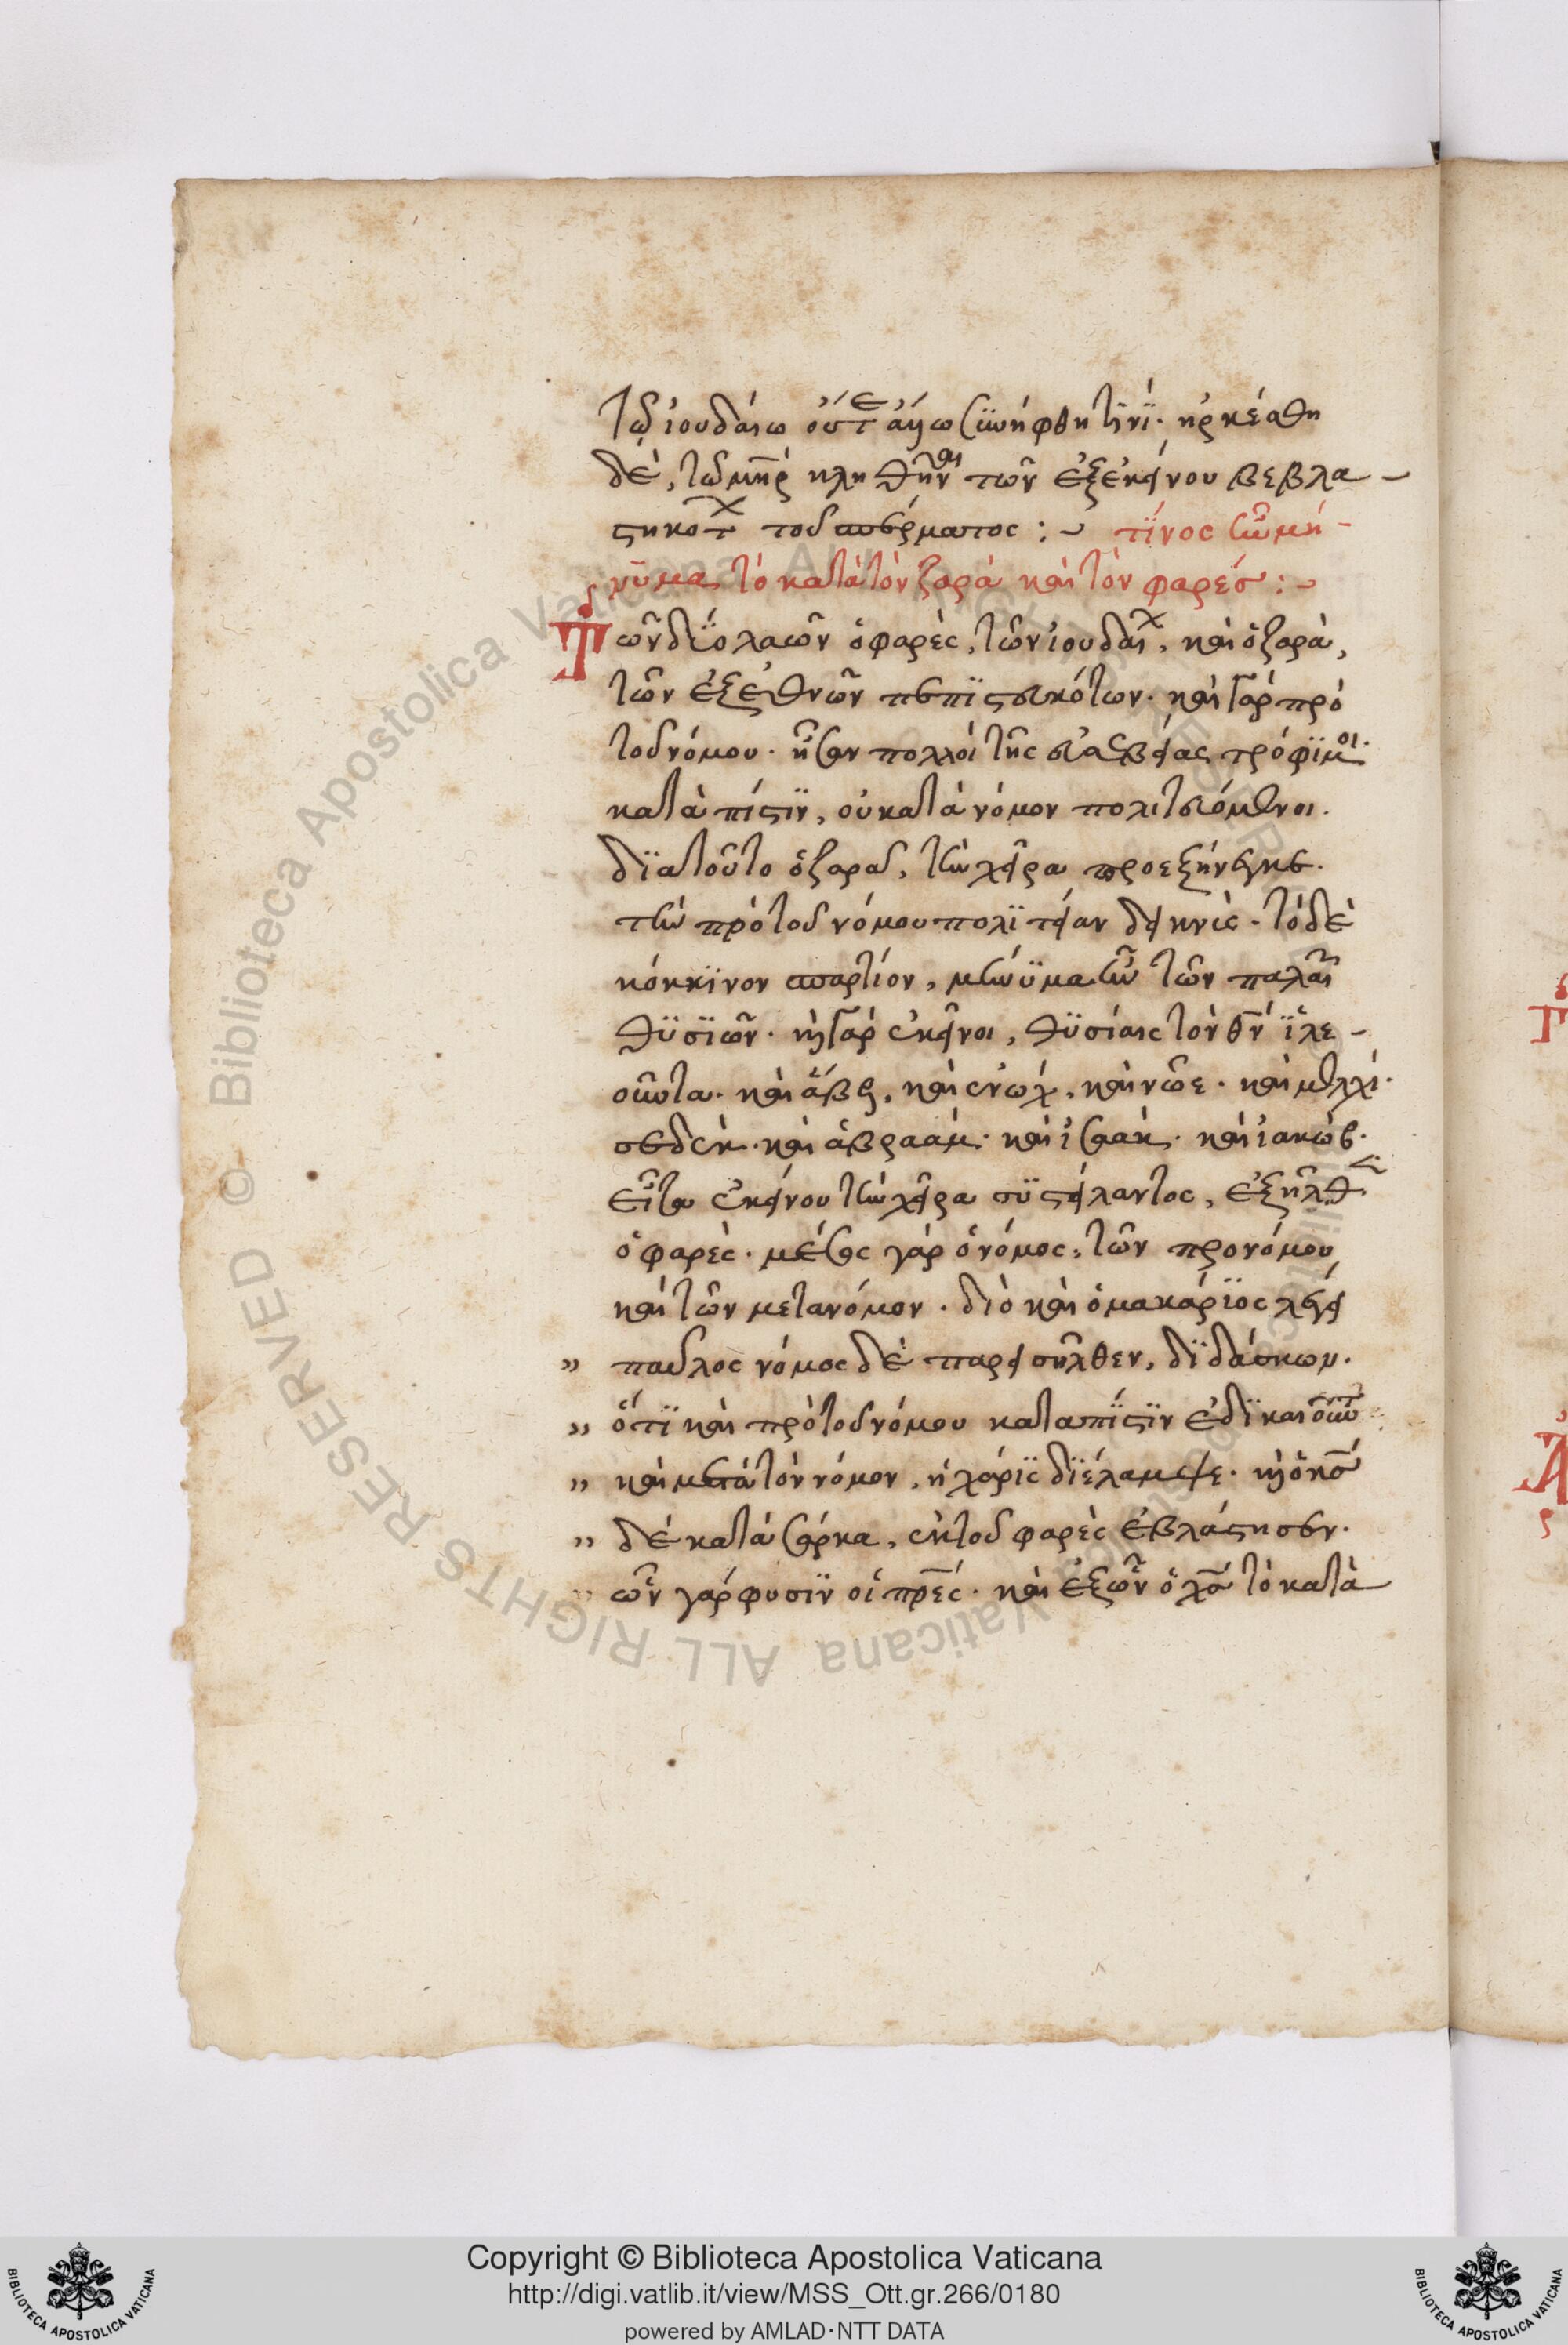 τῷ ἰουδαίῳ οὔτε ἄλλω συνήφθη τινί· ἠρκέσθη
δὲ, τῶ μὴρ κληθῆναι τῶν ἐξ ἐκείνου βεβλα-
στηκότων τοῦ σπέρματος :~ τίνος ὧ μή-
νυμα τὸ κατὰ τὸν ζαρὰ καὶ τὸν φαρές :~
Τῶν δύο λαῶν ὁ φαρὲς, τῶν ἰουδαίων, καὶ ὁ ζαρὰ,
τῶν ἐξ ἐθνῶν πεπιστευκότων· καὶ γὰρ πρὸ
τοῦ νόμου· ἦσαν πολλοί τῆς εὐσεβείας τρόφιμοι·
κατὰ πίστιν, οὐ κατὰ νόμον πολιτευόμενοι.
δϊα τοῦτο ὁ ζαρὰ, τὴν χεῖρα προεξήνεγκε.
τὴν πρὸ τοῦ νόμου πολϊτείαν δεικνὺς· τὸ δὲ
κόκκϊνον σπαρτίον, μήνϋμα ἦν τῶν παλαι
θϋσϊῶν· κἢ γὰρ ἐκεῖνοι, θϋσίαις τὸν θν ἵλε-
οῦντο· καὶ ἄβελ, καὶ ἐνὼχ, καὶ νῶε· καὶ μελχι·
σεδὲκ· καὶ ἀβραάμ· καὶ ἰσαὰκ· καὶ ἰακώβ·
εἶτα ἐκείνου τὴν χεῖρα συστείλαντος, ἐξῆλθεν
ὁ φαρὲς· μέσος γὰρ ὁ νόμος, τῶν προνόμου
καὶ τῶν μετανόμον· διὸ καὶ ὁ μακάριος λέγει
" παῦλος νόμος δὲ παρεισῆλθεν, δϊδάσκων·
" ὅτι καὶ πρὸ τοῦ νόμου καταπίστϊν ἐδϊκαιοῦντο
" καὶ μετὰ τὸν νόμον, ἡ χάρϊς δϊέλαμψε· κἢ ὁ κς
" δὲ κατὰ σάρκα, ἐκ τοῦ φαρὲς ἐβλάστησεν·
" ὧν γάρ φυσϊν οἱ πρες· καὶ ἐξ ὧν ὁ χς τὸ κατὰ
Copyright © Biblioteca Apostolica Vaticana
http://digi.vatlib.it/view/MSS_Ott.gr.266/0180
powered by AMLAD·NTT DATA
BIBLIOTECA APOSTOLICA VATICANA
BIBLIOTECA APOSTOLICA VATICANA
Biblioteca Apostolica Vaticana ALL RIGHTS RESERVED ©